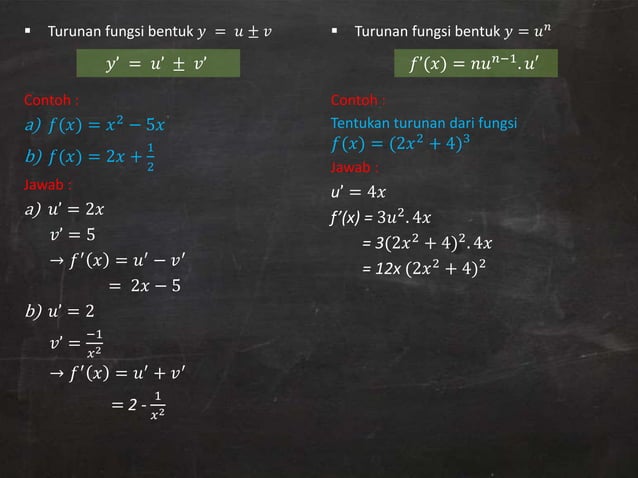 ▪ Turunan fungsi bentuk y = u ± v
y’ = u’ ± v’
Contoh :
a) f(x) = x² − 5x
b) f(x) = 2x + 1/2
Jawab :
a) u’ = 2x
v’ = 5
→ f′(x) = u′ − v′
= 2x − 5
b) u’ = 2
v’ = −1/x²
→ f′(x) = u′ + v′
= 2 - 1/x²
▪ Turunan fungsi bentuk y = uⁿ
f’(x) = nuⁿ⁻¹. u′
Contoh :
Tentukan turunan dari fungsi
f(x) = (2x² + 4)³
Jawab :
u’ = 4x
f’(x) = 3u². 4x
= 3(2x² + 4)². 4x
= 12x (2x² + 4)²